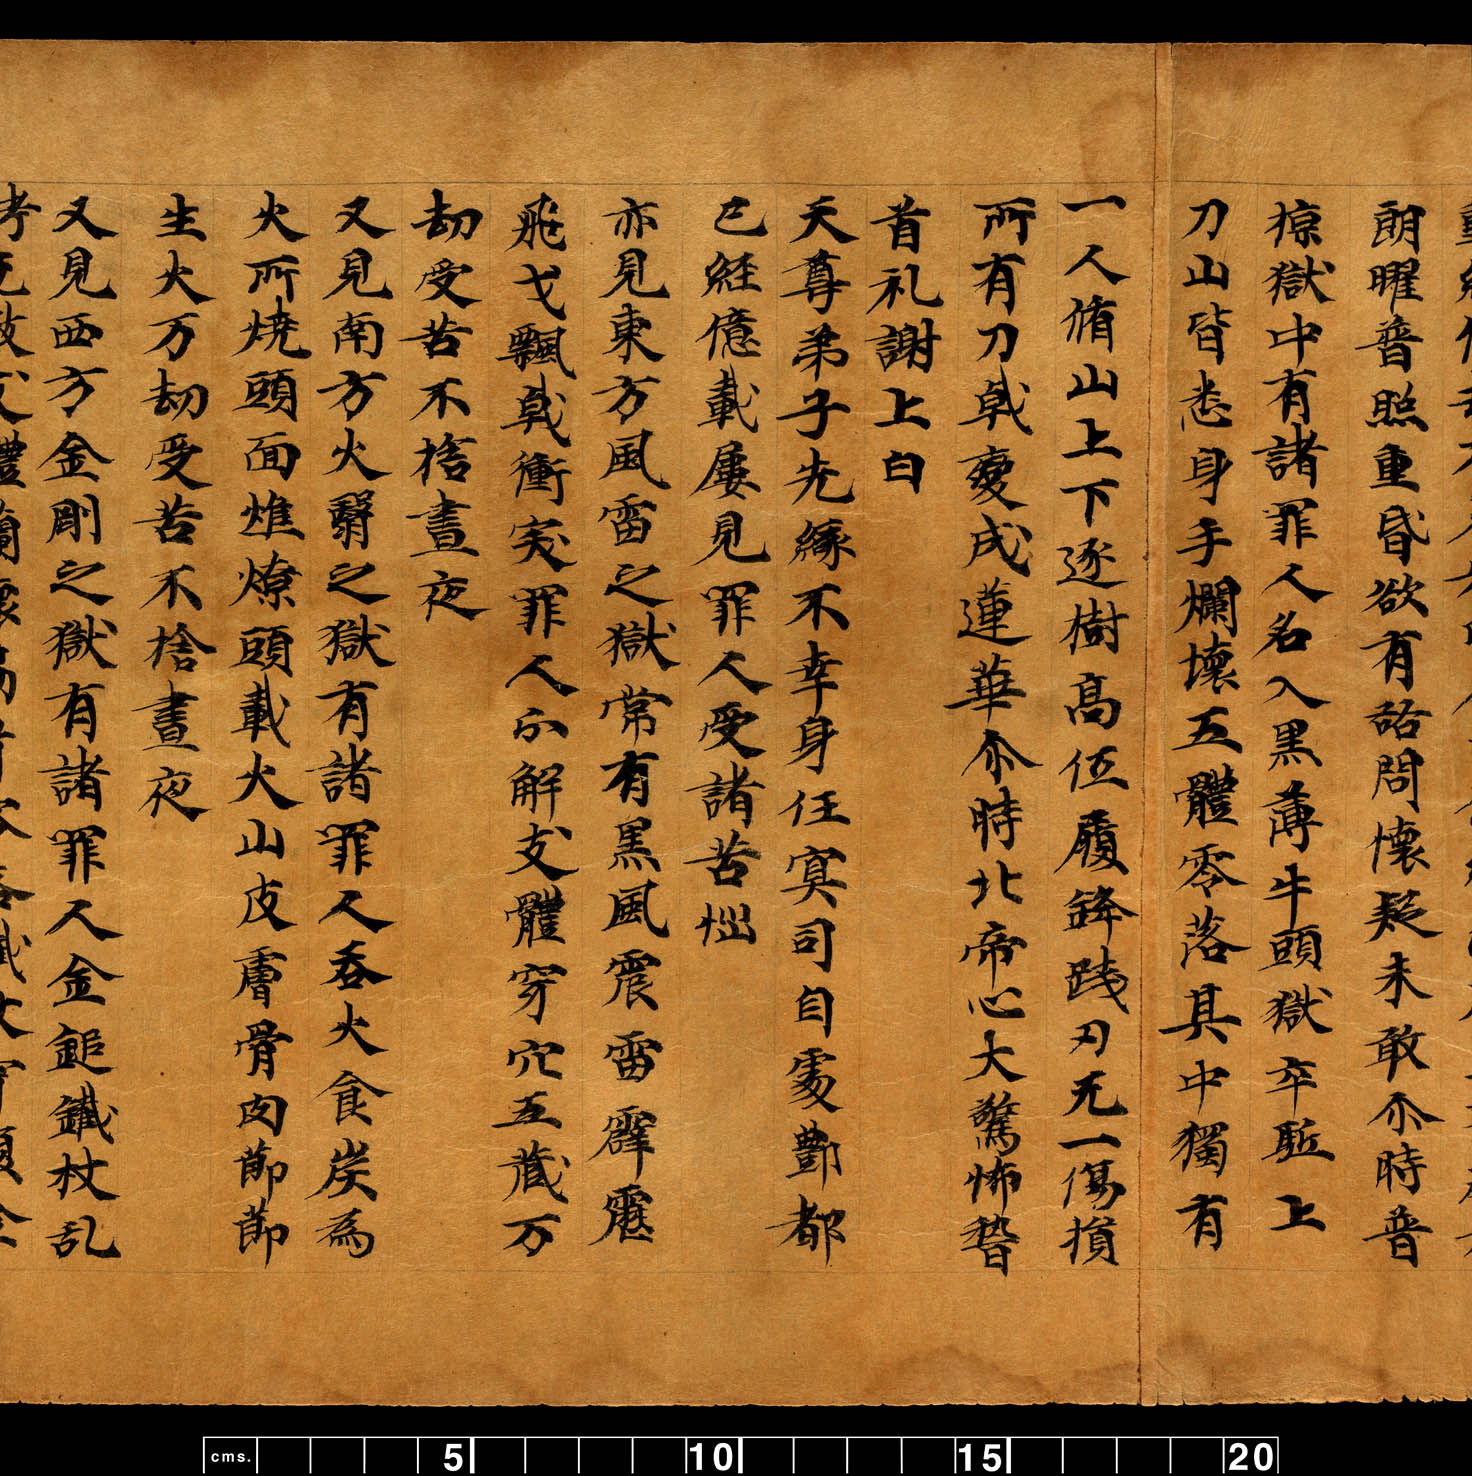 朗曜普照重昏欲有諮問懷疑未敢尒時普
掠獄中有諸罪人名入黒薄牛頭獄卒駈上
刀山皆悉身手爛壞五體零落其中獨有
一人脩山上下逐樹高伍履鋒践刃无一傷損
所有刀戟變成蓮華尒時北帝心大驚怖稽
首礼謝上白
天尊弟子先緣不幸身任冥司自處酆都
已經億載屢見罪人受諸苦惱
亦見東方風雷之獄常有黒風震雷霹靂
飛戈飄戟衝突罪人分解支體穿穴五藏万
劫受苦不捨晝夜
又見南方火翳之獄有諸罪人吞火食炭為
火所燒頭面燋燎頭戴火山皮膚骨肉節節
生火万劫受苦不捨晝夜
又見西方金剛之獄有諸罪人金鎚鐵杖乱